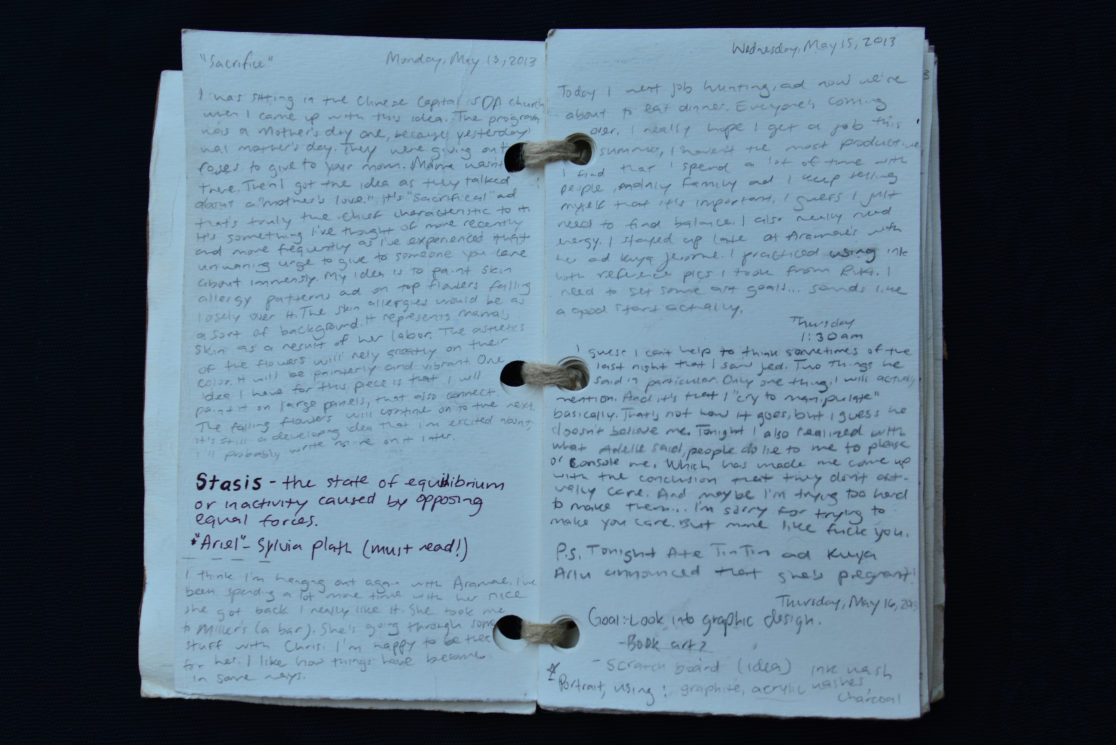 "Sacrifice" Monday, May 13, 2013
I was sitting in the Chinese Capital church
when I came up with this idea. The program
was a Mother's day one, because yesterday
was mother's day. They were giving out
roses to give to your mom. Mama wasn't
there. Then I got the idea as they talked
about a "mother's love." It's "sacrificial" ad
that's truly the chief characteristic to it
It's something I've thought of more recently
and more frequently as I've experienced that
urge to give to someone you care
about immensly. My idea is to paint skin
allergy patterns ad on top flowers falling
losely over it. The skin allergies would be as
a sort of background. It represents mama's
skin as a result of her labor. The asthetics
of the flowers will rely greatly on their
color. It will be painterly and vibrant. One
idea I have for this piece is that I will
paint it on large panels, that also connect.
The falling flowers will continue on to the next.
It's still a developing idea that I'm excited about,
I'll probably write more on it later.
Stasis - the state of equilibrium
or inactivity caused by opposing
equal forces.
*"Ariel" - Sylvia plath (must read!)
I think I'm hanging out again with Aramae. I've
been spending a lot more time with her since
she got back I really like it. She took me
to Miller's (a bar). She's going through some
stuff with Chris. I'm happy to be there
for her. I like how things have become
in some ways.
Wednesday, May 15, 2013
Today I went job hunting, ad now we're
about to eat dinner. Everyone's coming
over. I really hope I get a job this
summer, I haven't the most productive
I find that I spend a lot of time with
people, mainly family ad I keep telling
myself that it's important, I guess I just
need to find balance. I also really need
energy. I stayed up late at Aramae's with
her ad kuya Jerome. I practiced using ink
with reference pics I took from . I
need to set some art goals... sounds like
a good start actually.
Thursday
1:30am
I guess I can't help to think sometimes of the
last night that I saw Jed. Two things he
said in particular. Only one thing I will actually
mention. And it's that I "cry to manipulate"
basically. That's not how it goes, but I guess he
doesn't believe me. Tonight I also realized with
what Adelle said, people do lie to me to please
or console me. Which has made me come up
with the conclusion that they don't act-
ually care. And maybe I'm trying too hard
to make them... I'm sorry for trying to
make you care. But more like fuck you.
P.s. Tonight Ate TinTin ad Kuya
announced that she's pregnant!
Thursday, May 16, 2013
Goal:-Look into graphic design.
-Book art?
-Scratch board (idea) ink wash
*Portrait, using: graphite, acrylic washes,
charcoal